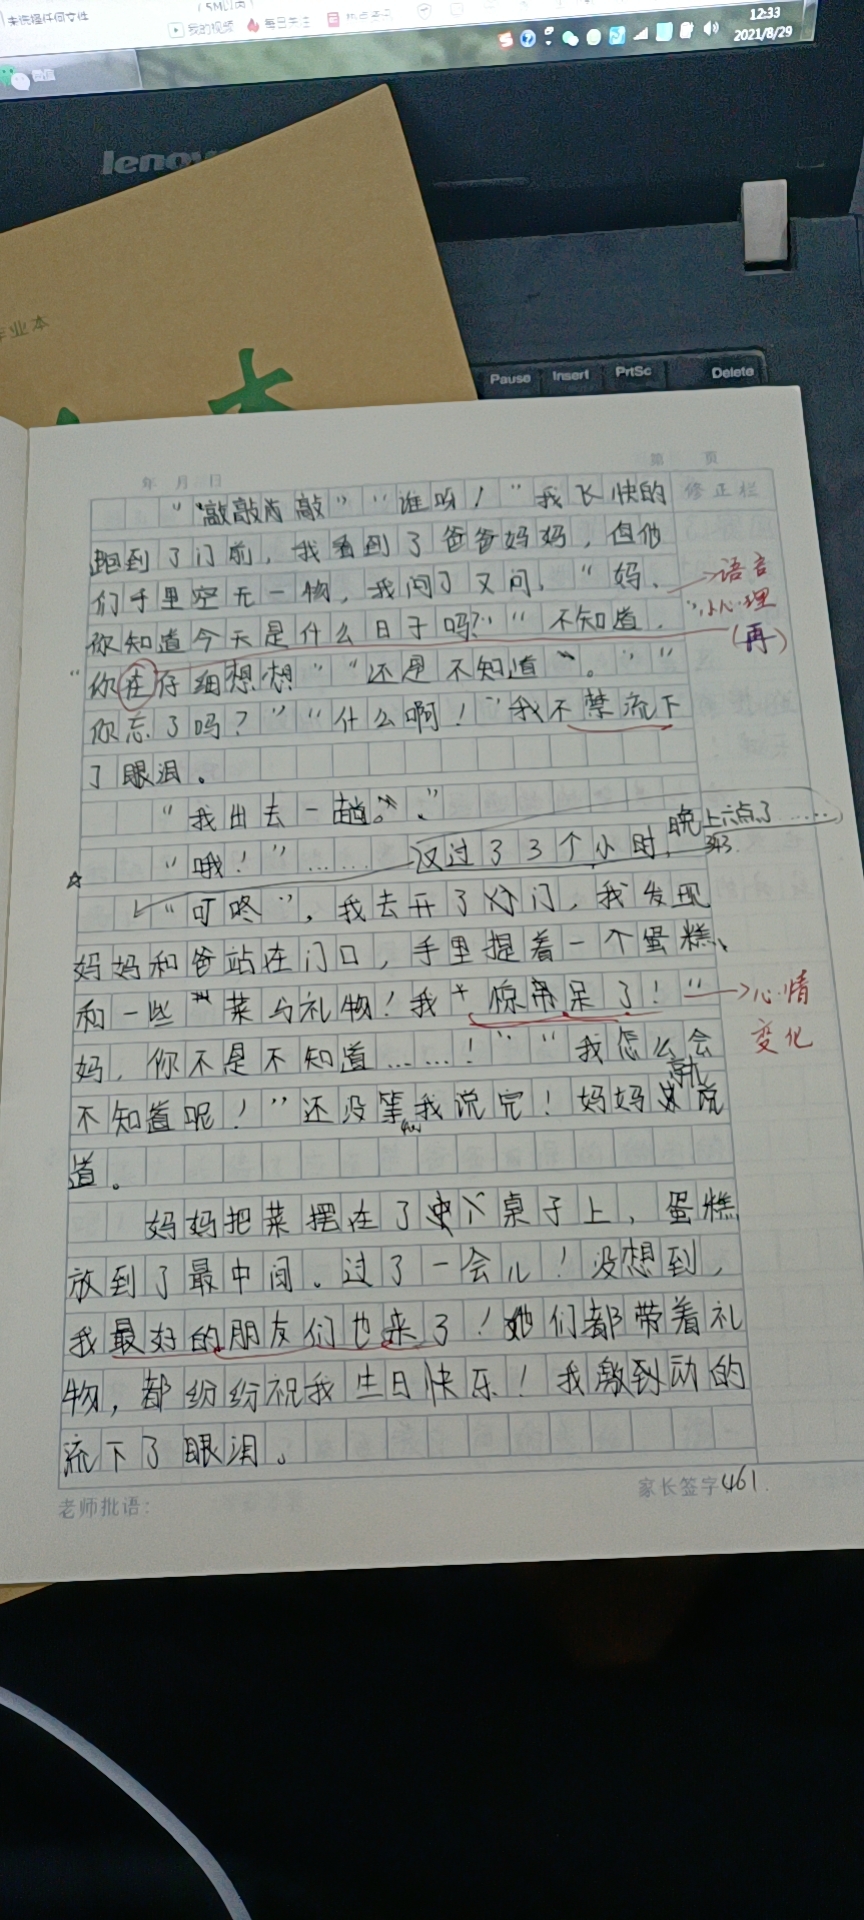 未选择任何文件
我的视频
每日关注
12:33
2021/8/29
微信
lenovo
作业本
Pause
Insert
PrtSc
Delete
年 月 日
第 页
修正栏
"敲敲敲""谁呀!"我飞快的
跑到了门前,我看到了爸爸妈妈,但他
们手里空无一物,我问了又问,"妈、
你知道今天是什么日子吗?""不知道,
"你在仔细想想""还是不知道"。""
你忘了吗?""什么啊!"我不禁流下
了眼泪。
语言
心理
(再)
"我出去一趟。"
"哦!"…… 又过了3个小时,晚上六点了……
"叮咚",我去开了门,我发现
妈妈和爸站在门口,手里提着一个蛋糕、
和一些菜与礼物!我惊呆了!"
心情
变化
妈,你不是不知道……!""我怎么会
不知道呢!"还没等我说完!妈妈就说
道。
妈妈把菜摆在了桌子上,蛋糕
放到了最中间。过了一会儿!没想到,
我最好的朋友们也来了!她们都带着礼
物,都纷纷祝我生日快乐!我激动的
流下了眼泪。
老师批语:
家长签字461.